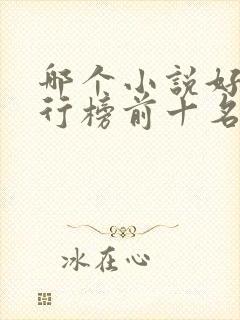 哪个小说好
行榜前十名
冰在心